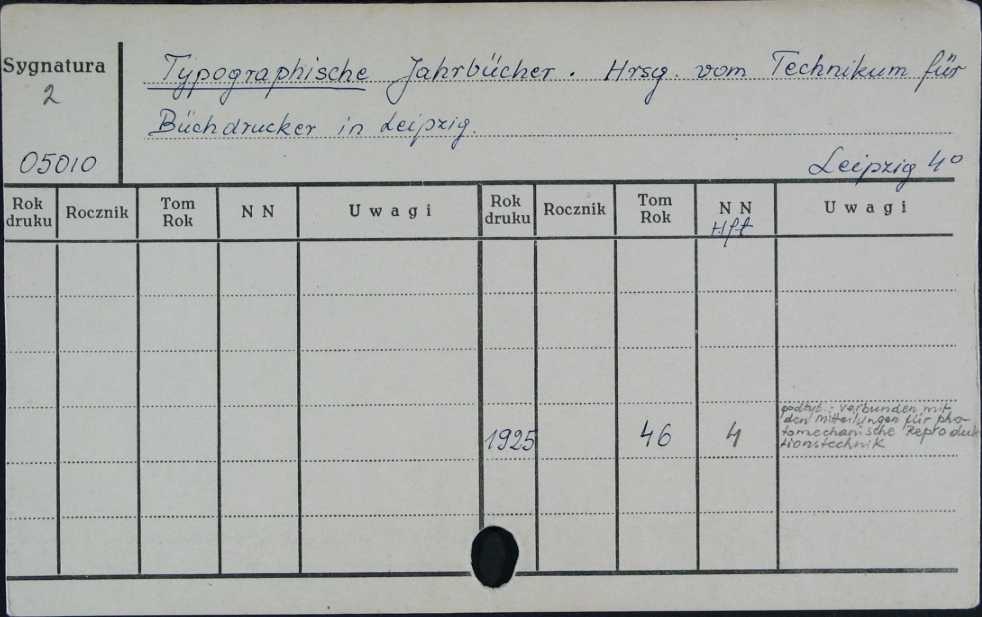 Sygnatura
2
05010
Typographische Jahrbücher. Hrsg. vom Technikum für
Büchdrucker in Leipzig.
Leipzig 4°
Rok druku Rocznik Tom Rok N N Uwagi Rok druku Rocznik Tom Rok N N Uwagi
Hft
1925 46 4
podtyt.: Verbunden mit
den Mitteilungen für pho-
tomechanische Reproduk
tionstechnik